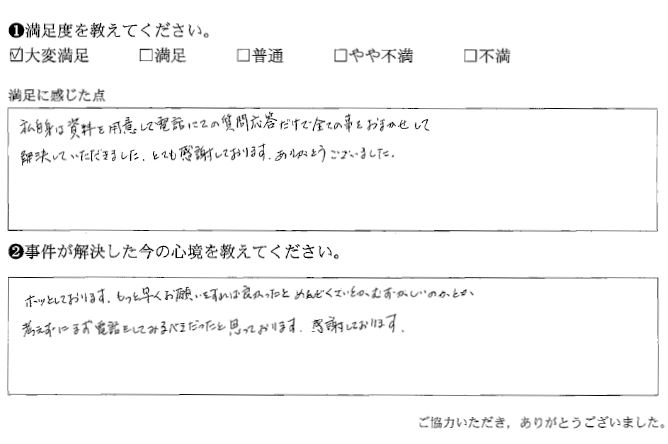 ❶満足度を教えてください。
☑大変満足 □満足 □普通 □やや不満 □不満
満足に感じた点
私自身は資料を用意して電話にての質問応答だけで全ての事をおまかせして
解決していただきました。とても感謝しております。ありがとうございました。
❷事件が解決した今の心境を教えてください。
ホッとしております。もっと早くお願いをすれば良かったと めんどくさいとか、むずかしいのかとか、
考えずにまず電話をしてみるべきだったと思っております。感謝しております。
ご協力いただき，ありがとうございました。